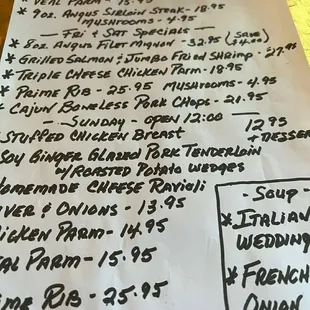 VEAL PARM - 15.95
* 9oz. ANGUS SIRLOIN STEAK - 18.95
MUSHROOMS - 4.95
— FRI & SAT SPECIALS —
* 8oz. ANGUS FILET MIGNON - 32.95 (SAVE $4.00)
* GRILLED SALMON & JUMBO FRIED SHRIMP - 27.95
* TRIPLE CHEESE CHICKEN PARM - 18.95
* PRIME RIB - 25.95 MUSHROOMS - 4.95
* CAJUN BONELESS PORK CHOPS - 21.95
— SUNDAY - OPEN 12:00
STUFFED CHICKEN BREAST
12.95 + DESSER
SOY GINGER GLAZED PORK TENDERLOIN
W/ROASTED POTATO WEDGES
HOMEMADE CHEESE RAVIOLI
IVER & ONIONS - 13.95
HICKEN PARM - 14.95
EAL PARM - 15.95
IME RIB - 25.95
- SOUP -
* ITALIAN
WEDDING
* FRENCH
ONION